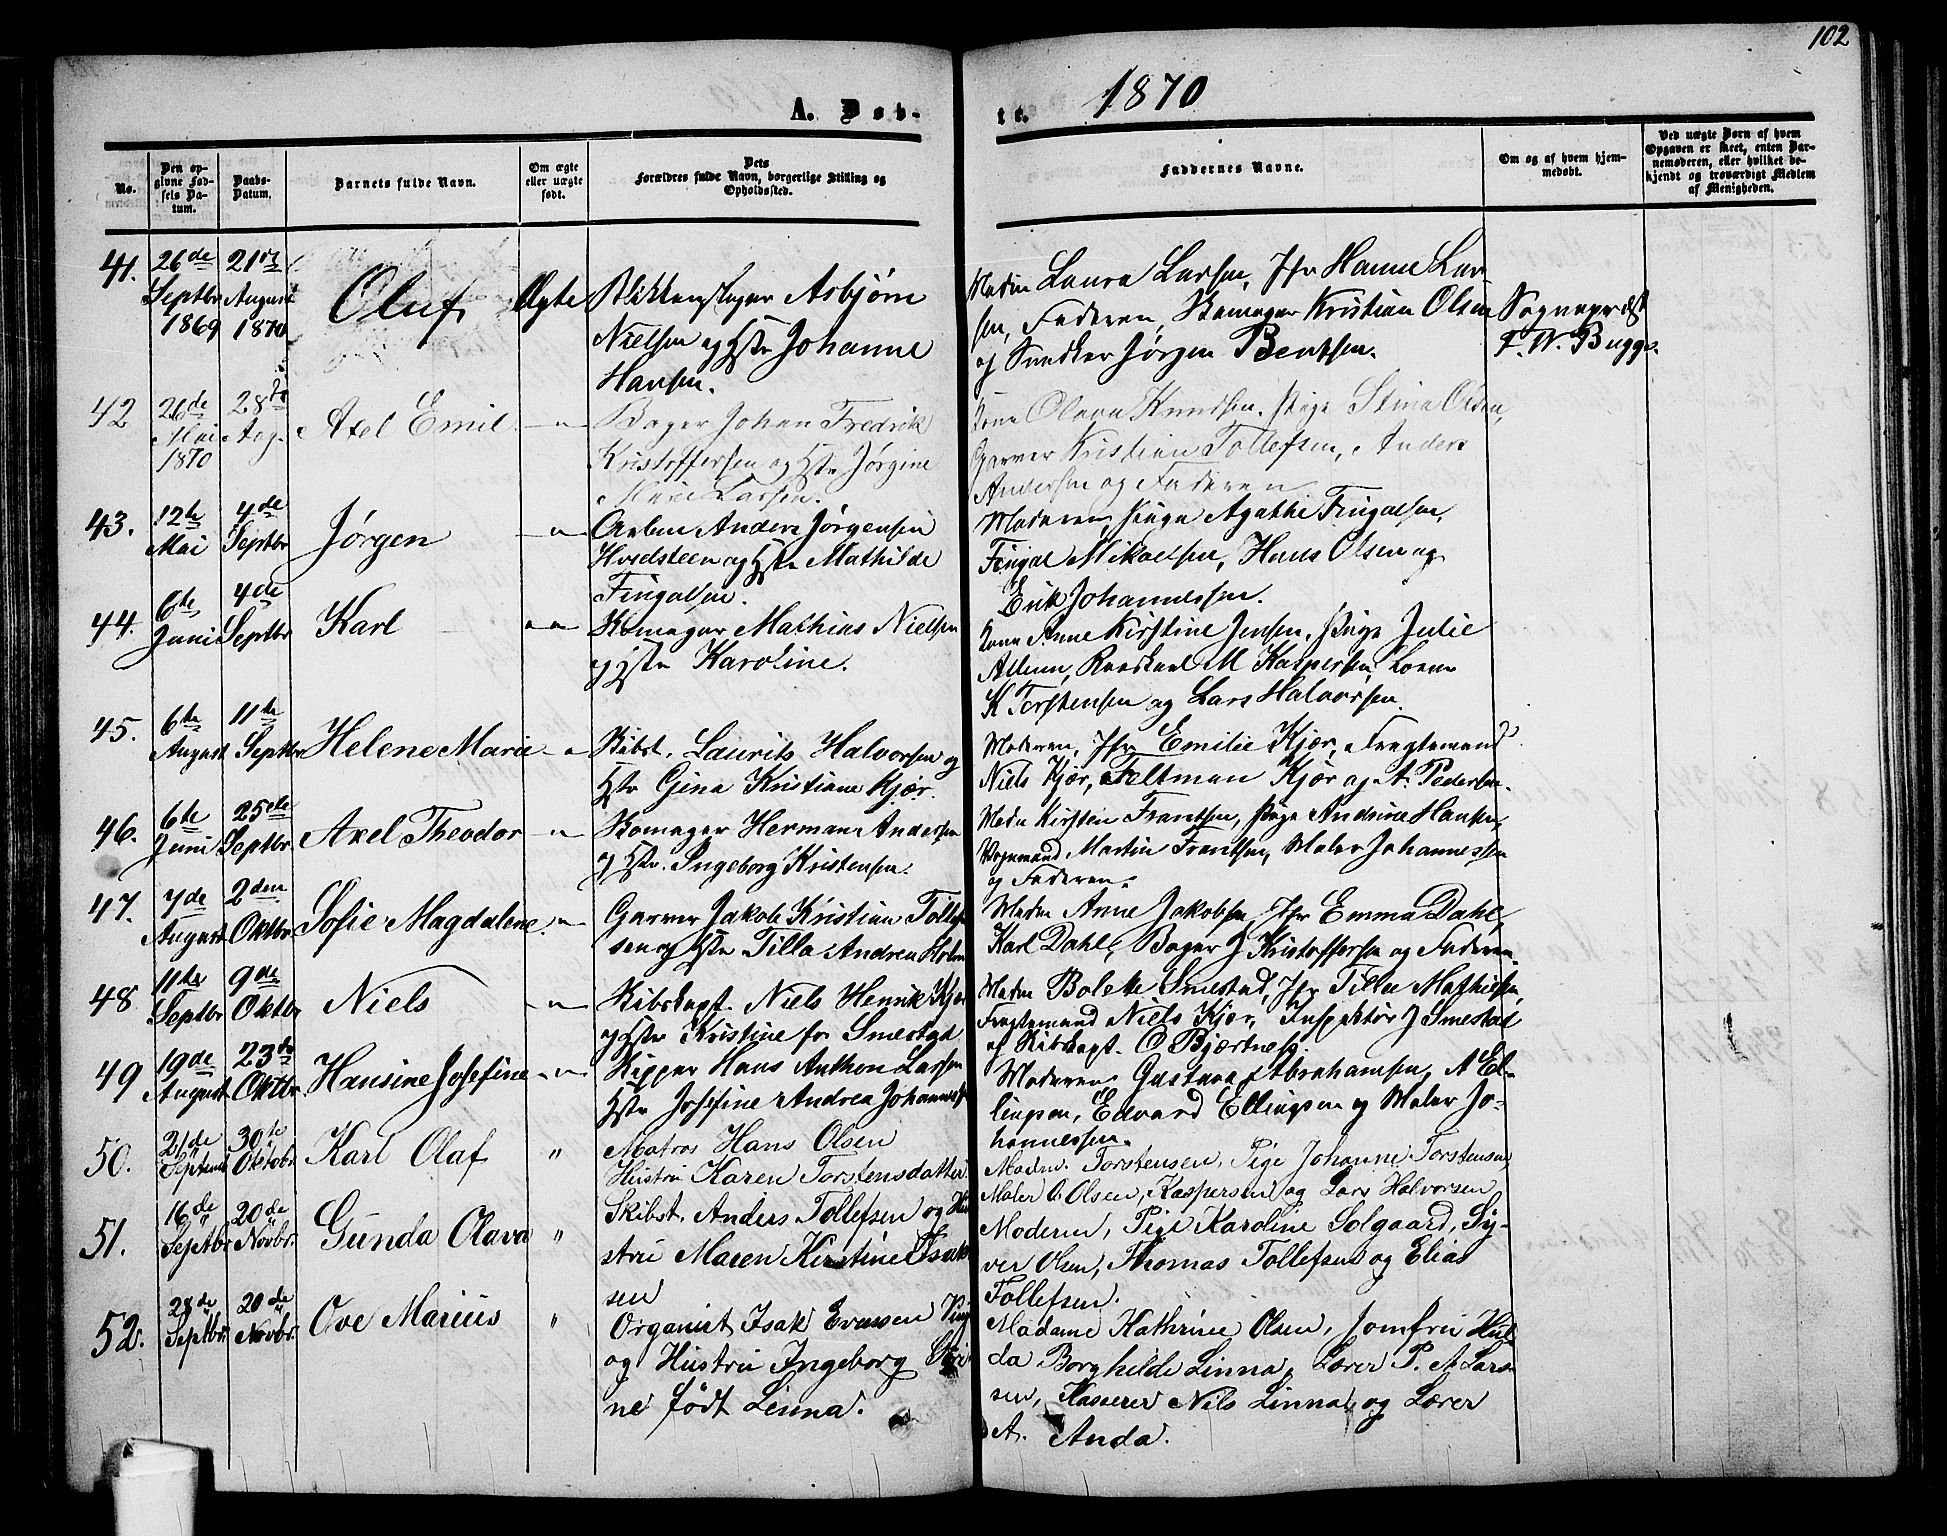 102
A. Døb-
te.
1870
No.
Den op-
givne Fød-
sels Da-
tum.
Daabs-
Datum.
Barnets fulde Navn.
Om ægte
eller uægte
født.
Dets
Forældres fulde Navn, borgerlige Stilling og
Opholdssted.
Faddernes Navne.
Om og af hvem hjem-
medøbt.
Ved uægte Børn af hvem
Opgaven er skeet, enten Bar-
nemoderen, eller hvilket be-
kjendt og troværdigt Medlem
af Menigheden.
41.
26de
Septbr
1869
21de
August
1870
Oluf
Ægte
Blikkenslager Asbjørn
Nielsen og Hstr Johanne
Hansen.
Madm Laura Larsen, Jfr Hanne Lar
sen, Faderen, Skomager Kristian Olsen
og Snedker Jørgen Bentsen.
Sognepræst
F. W. Bugge.
42
26de
Mai
1870
28de
Aug.
Axel Emil
-"-
Bager Johan Fredrik
Kristoffersen og Hstr Jørgine
Marie Larsen.
Kone Olava Knudsen, Pige Stina Olsen,
Garver Kristian Tollefsen, Anders
Andersen og Faderen
43.
12te
Mai
4de
Septbr
Jørgen
-"-
Arbm Anders Jørgensen
Hvidsteen og Hstr Mathilde
Fingalsen.
Moderen, Pige Agathe Fingalsen,
Fingal Mikaelsen, Hans Olsen og
Erik Johannessen.
44.
6te
Juni
4de
Septbr
Karl
-"-
Skomager Mathias Nielsen
og Hstr Karoline.
Kone Anne Kirstine Jensen, Pige Julie
M Kaspersen,
K Torstensen og Lars Halvorsen.
45.
6te
August
11te
Septbr
Helene Marie
-"-
Skibst. Laurits Halvorsen og
Hstr Gina Kristiane Kjær.
Moderen, Jfr Emilie Kjær, Fragtemand
Niels Kjær, Feltman Kjær og A. Pedersen.
46.
6te
Juni
25de
Septbr.
Axel Theodor
-"-
Skomager Herman Andersen
og Hstr. Ingeborg Kristensen.
Madm Kirsten Frantsen, Pige Andrine Hansen,
Vognmand Martin Frantsen, Maler Johannessen
og Faderen.
47.
7de
August
2den
Oktbr
Sofie Magdalene.
-"-
Garver Jakob Kristian Tollef
sen og Hstr Tilla Andrea Holm
Madm Anne Jakobsen, Jfr Emma Dahl,
Karl Dahl, Bager J Kristoffersen og Faderen.
48
11te
Septbr
9de
Oktbr
Niels
-"-
Skibskapt. Niels Henrik Kjær
og Hstr Kristine fø Smestad
Madm Bolette Smestad, Jfr Tilla Mathisen,
Fragtemand Niels Kjær, Inspektør J Smestad
og Skibskapt. O Bjærtnes.
49
19de
August
23de
Oktbr.
Hansine Josefine
-"-
Skipper Hans Anthon Larsen
Hstr Josefine Andrea Johannes
Moderen, Gustava Abrahamsen, A El-
lingsen, Edvard Ellingsen og Maler Jo-
hannessen.
50.
21de
Septemb
30te
Oktobr
Karl Olaf
"
Matros Hans Olsen
Hustru Karen Torstensdatter
Madm. Torstensen, Pige Johanne Torstensen,
Maler O. Olsen, Kaspersen og Lars Halvorsen
51.
16de
Septbr
20de
Novbr.
Gunda Olava
"
Skibst. Anders Tollefsen og Hu
stru Maren Kirstine Isak
sen
Moderen, Pige Karoline Solgaard, Sy-
ver Olsen, Thomas Tollefsen og Elias
Tollefsen.
52.
28de
Septbr.
20de
Novbr.
Ove Marius
"
Organist Isak Evensen Ving
og Hustru Ingeborg Stri
ne født Linna.
Madame Kathrine Olsen, Jomfru Hul
da Borghilde Linna, Lærer P. A Lars
sen, Kasserer Nils Linna, og Lærer
A. Anda.